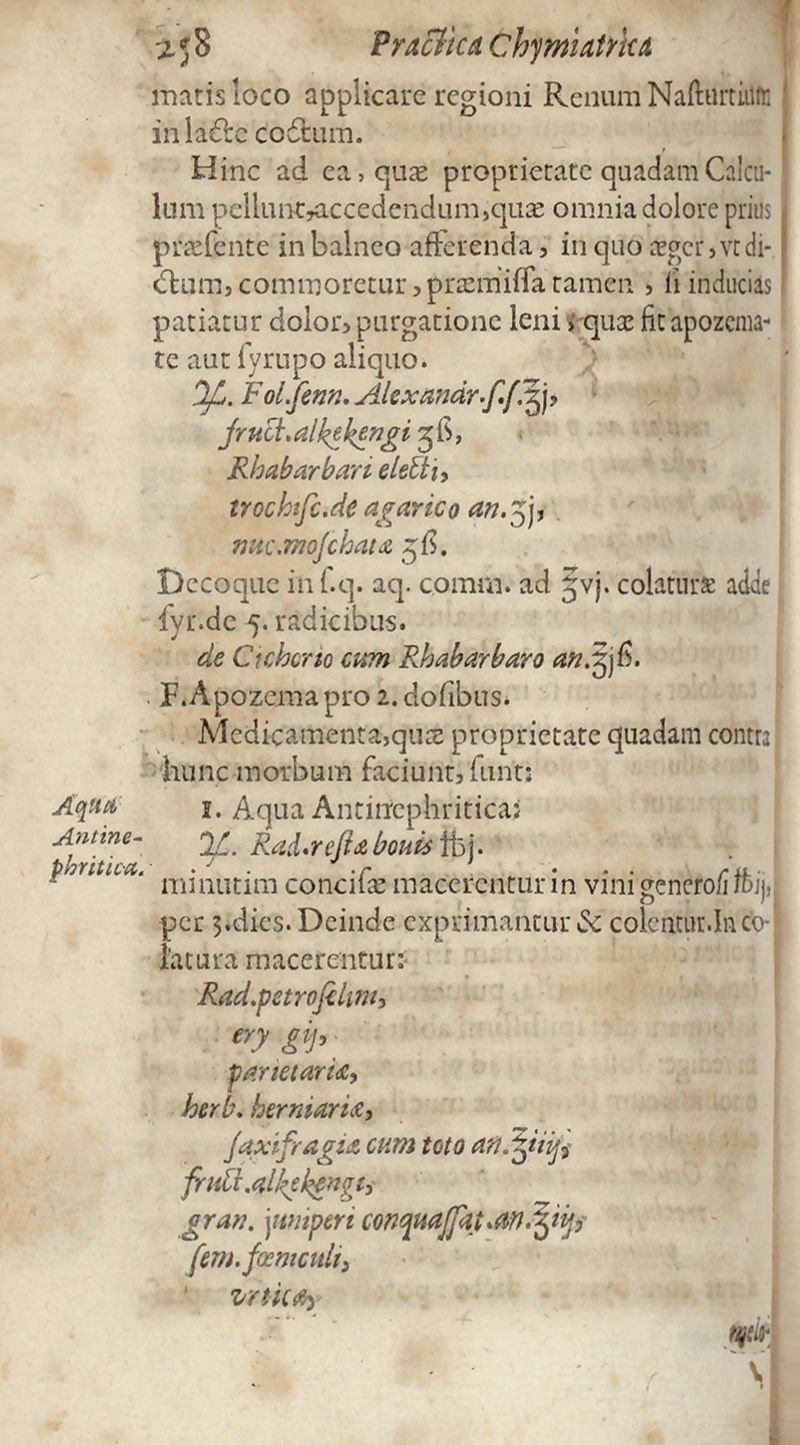 258 Practica Chymiatrica
matis loco applicare regioni Renum Naſturtium
in lacte coctum.
Hinc ad ea, quæ proprietate quadam Calcu-
lum pellunt, accedendum, quæ omnia dolore prius
præſente in balneo afferenda, in quo æger, vt di-
ctum, commoretur, præmiſſa tamen, ſi inducias
patiatur dolor, purgatione leni, quæ fit apozema-
te aut ſyrupo aliquo.
℞. Fol. ſenn. Alexandr. ſ. ſ. ℥j,
fruct. alkekengi ʒß,
Rhabarbari electi,
trochiſc. de agarico an. ʒj,
nuc. moſchatæ ʒß.
Decoque in ſ.q. aq. comm. ad ℥vj. colaturæ adde
ſyr. de 5. radicibus.
de Cichorio cum Rhabarbaro an. ℥jß.
F. Apozema pro 2. doſibus.
Medicamenta, quæ proprietate quadam contra
hunc morbum faciunt, ſunt:
Aqua
Antine-
phritica.
1. Aqua Antinephritica:
℞. Rad. reſtæ bouis ℔j.
minutim conciſæ macerentur in vini generoſi ℔ij,
per 3. dies. Deinde exprimantur & colentur. In co-
latura macerentur:
Rad. petroſelini,
eryngij,
parietariæ,
herb. herniariæ,
ſaxifragiæ cum toto an. ℥iiij,
fruct. alkekengi,
gran. juniperi conquaſſat. an. ℥iij,
ſem. fœniculi,
vrticæ,